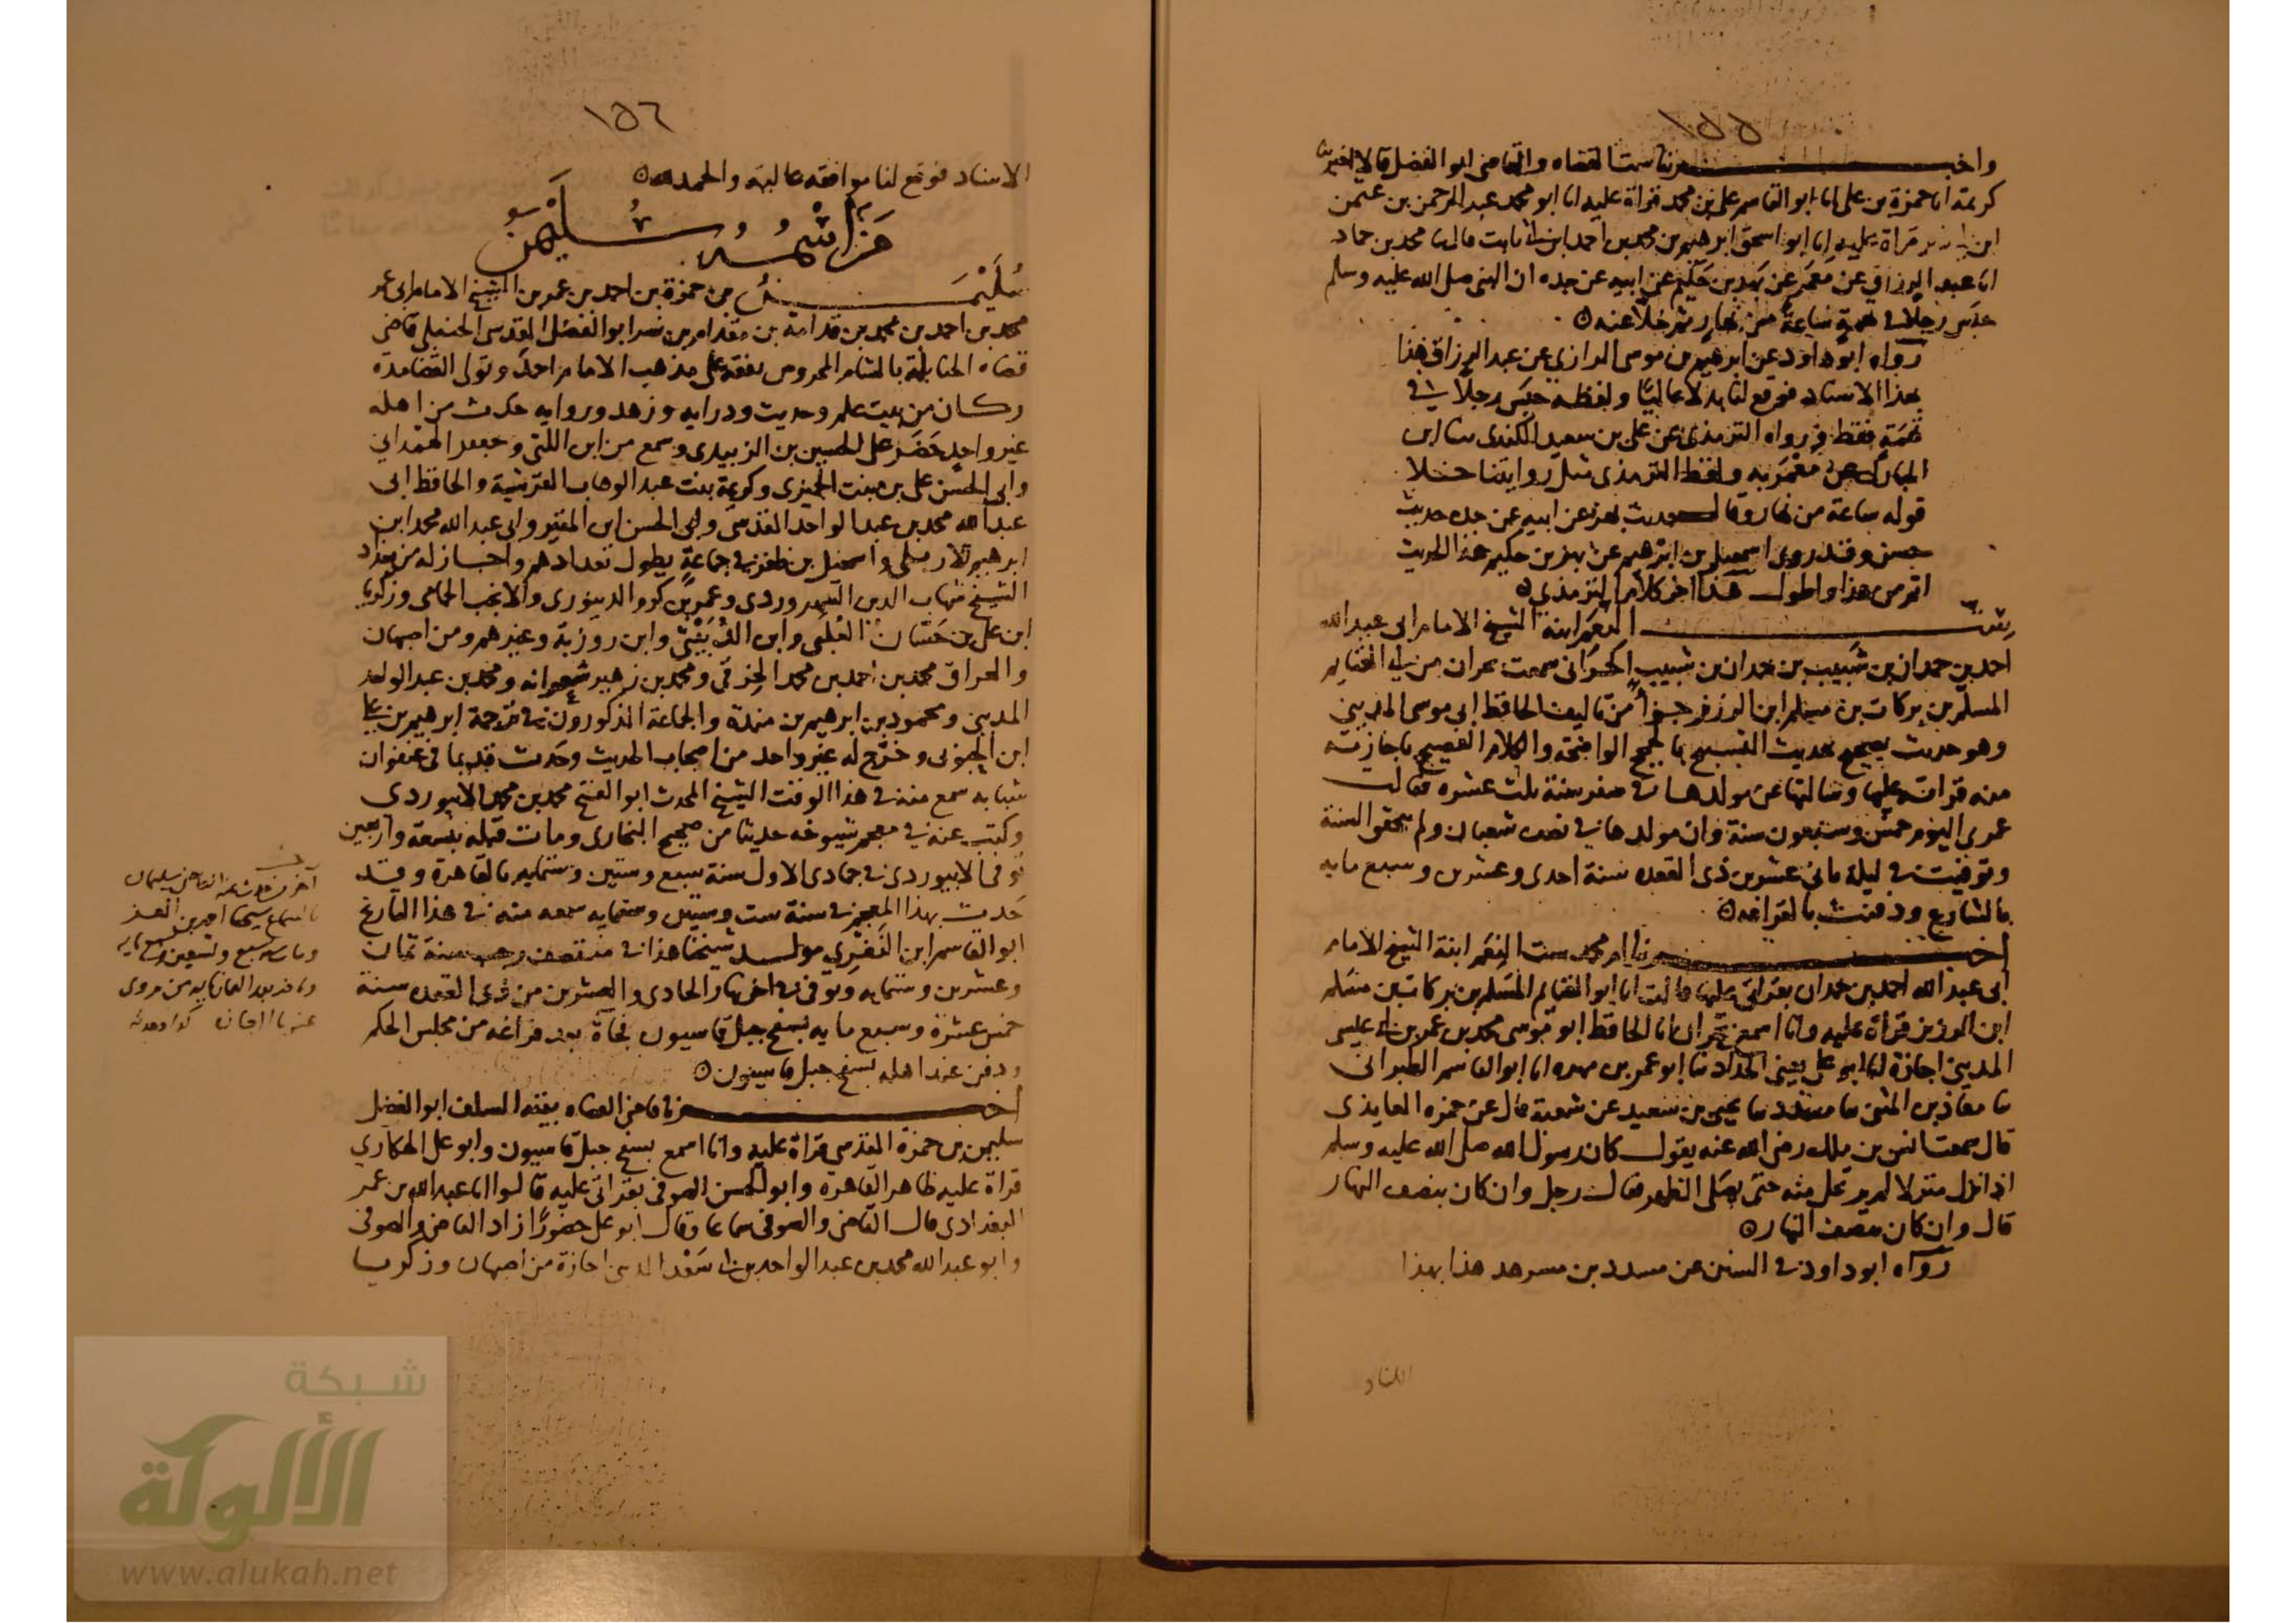 ١٥٥
واخبرتنا ست القضاه والقاضى ابو الفضل قالا اخبرتنا
كريمة انا حمزة بن على انا ابو القاسم على بن محمد قراة عليه انا ابو محمد عبد الرحمن بن عثمن
قراة عليه انا ابو اسحق ابرهيم بن محمد بن احمد ابن ابى ثابت قال ثنا محمد بن حماد
انا عبد الرزاق عن معمر عن بهز بن حكيم عن ابيه عن جده ان النبى صلى الله عليه وسلم
حبس رجلا فى تهمة ساعة من نهار ثم خلا عنه
رواه ابو داود عن ابرهيم بن موسى الرازى عن عبد الرزاق هذا
بهذا الاسناد فوقع لنا بدلا عاليا ولفظه حبس رجلا فى
تهمة فقط ورواه الترمذى عن على بن سعيد الكندى ثنا ابن
المبارك عن معمر به ولفظ الترمذى مثل روايتنا خلا
قوله ساعة من نهار وقال حديث بهز عن ابيه عن جده حديث
حسن وقد روى اسمعيل بن ابرهيم عن بهز بن حكيم هذا الحديث
اتم من هذا واطول هذا اخر كلام الترمذى
ست النعم ابنة الشيخ الامام ابى عبد الله
احمد بن حمدان بن شبيب بن حمدان بن شبيب الحرانى سمعت بحران من ابى الغنايم
المسلم بن بركات بن مسلم ابن الوزفر جزأ من تاليف الحافظ ابى موسى المدينى
وهو حديث تصحيح حديث التسبيح بالحجج الواضحة والكلام الفصيح باجازته
منه قرات عليها وسالتها عن مولدها فى صفر سنة ثلث عشره فقالت
عمرى اليوم خمس وسبعون سنة وان مولدها فى نصف شعبان ولم تحقق السنة
وتوفيت فى ليلة ثانى عشرين ذى القعده سنة احدى وعشرين وسبع مايه
بالشارع ودفنت بالقرافه
اخبرتنا ام محمد ست النعم ابنة الشيخ الامام
ابى عبد الله احمد بن حمدان بقراتى عليها قالت انا ابو الغنايم المسلم بن بركات بن مسلم
ابن الوزفر قراة عليه وانا اسمع بحران انا الحافظ ابو موسى محمد بن عمر بن ابى عيسى
المدينى اجازة انا ابو على يعنى الحداد ثنا ابو عمر بن مهره انا ابو القاسم الطبرانى
ثنا معاذ بن المثنى ثنا مسدد ثنا يحيى بن سعيد عن شعبة قال عن حمزه العايذى
قال سمعت انس بن ملك رضى الله عنه يقول كان رسول الله صلى الله عليه وسلم
اذا نزل منزلا لم يرتحل منه حتى يصلى الظهر فقال رجل وان كان بنصف النهار
قال وان كان بنصف النهار
رواه ابو داود فى السنن عن مسدد بن مسرهد هذا بهذا
١٥٦
الاسناد فوقع لنا موافقه عاليه والحمد لله
من اسمه سليمن
سليمن بن حمزة بن احمد بن عمر بن الشيخ الامام ابى عمر
محمد بن احمد بن محمد بن قدامة بن مقدام بن نصر ابو الفضل المقدسى الحنبلى قاضى
قضاه الحنابلة بالشام المحروس تفقه على مذهب الامام احمد وتولى القضا مدة
وكان من بيت علم وحديث ودرايه وزهد وروايه حدث من اهله
غير واحد حضر على الحسين بن الزبيدى وسمع من ابن اللتى وجعفر الهمدانى
وابى الحسن على بن بنت الجميزى وكريمة بنت عبد الوهاب القرشية والحافظ ابى
عبد الله محمد بن عبد الواحد المقدسى وابى الحسن ابن المقير وابى عبد الله محمد ابن
ابرهيم الاربلى واسمعيل بن ظفر فى جماعة يطول تعدادهم واجاز له من بغداد
الشيخ شهاب الدين السهروردى وعمر بن كرم الدينورى والانجب الحمامى وزكريا
ابن على بن حسان العلبى وابن القبيطى وابن روزبة وغيرهم ومن اصبهان
والعراق محمد بن احمد بن محمد ومحمد بن زهير شعرانه ومحمد بن عبد الواحد
المدينى ومحمود بن ابرهيم بن مندة والجماعة المذكورون فى ترجمة ابرهيم بن على
ابن الحبوبى وخرج له غير واحد من اصحاب الحديث وحدث قديما فى عنفوان
شبابه سمع منه فى هذا الوقت الشيخ المحدث ابو الفتح محمد بن محمد الابيوردى
وكتب عنه فى معجم شيوخه حديثا من صحيح البخارى ومات قبله بتسعة واربعين
توفى الابيوردى فى جمادى الاول سنة سبع وستين وستمايه بالقاهرة وقد
حدث بهذا المعجم فى سنة ست وستين وستمايه سمعه منه فى هذا التاريخ
ابو القاسم ابن مولد شيخنا هذا فى منتصف رجب سنة ثمان
وعشرين وستمايه وتوفى فى اخر نهار الحادى والعشرين من ذى القعده سنة
خمس عشرة وسبع مايه بسفح جبل قاسيون فجأة بعد فراغه من مجلس الحكم
ودفن عند اهله بسفح جبل قاسيون
اخبرنا قاضى القضاه بقية السلف ابو الفضل
سليمن بن حمزة المقدسى قراة عليه وانا اسمع بسفح جبل قاسيون وابو على الهكارى
قراة عليه ظاهر القاهره وابو الحسن الصوفى بقراتى عليه قالوا انا عبد الله بن عمر
البغدادى قال القاضى والصوفى سماعا وقال ابو على حضورا زاد القاضى والصوفى
وابو عبد الله محمد بن عبد الواحد بن ابى سعد المدينى اجازة من اصبهان وزكريا
شبكة
الألوكة
www.alukah.net